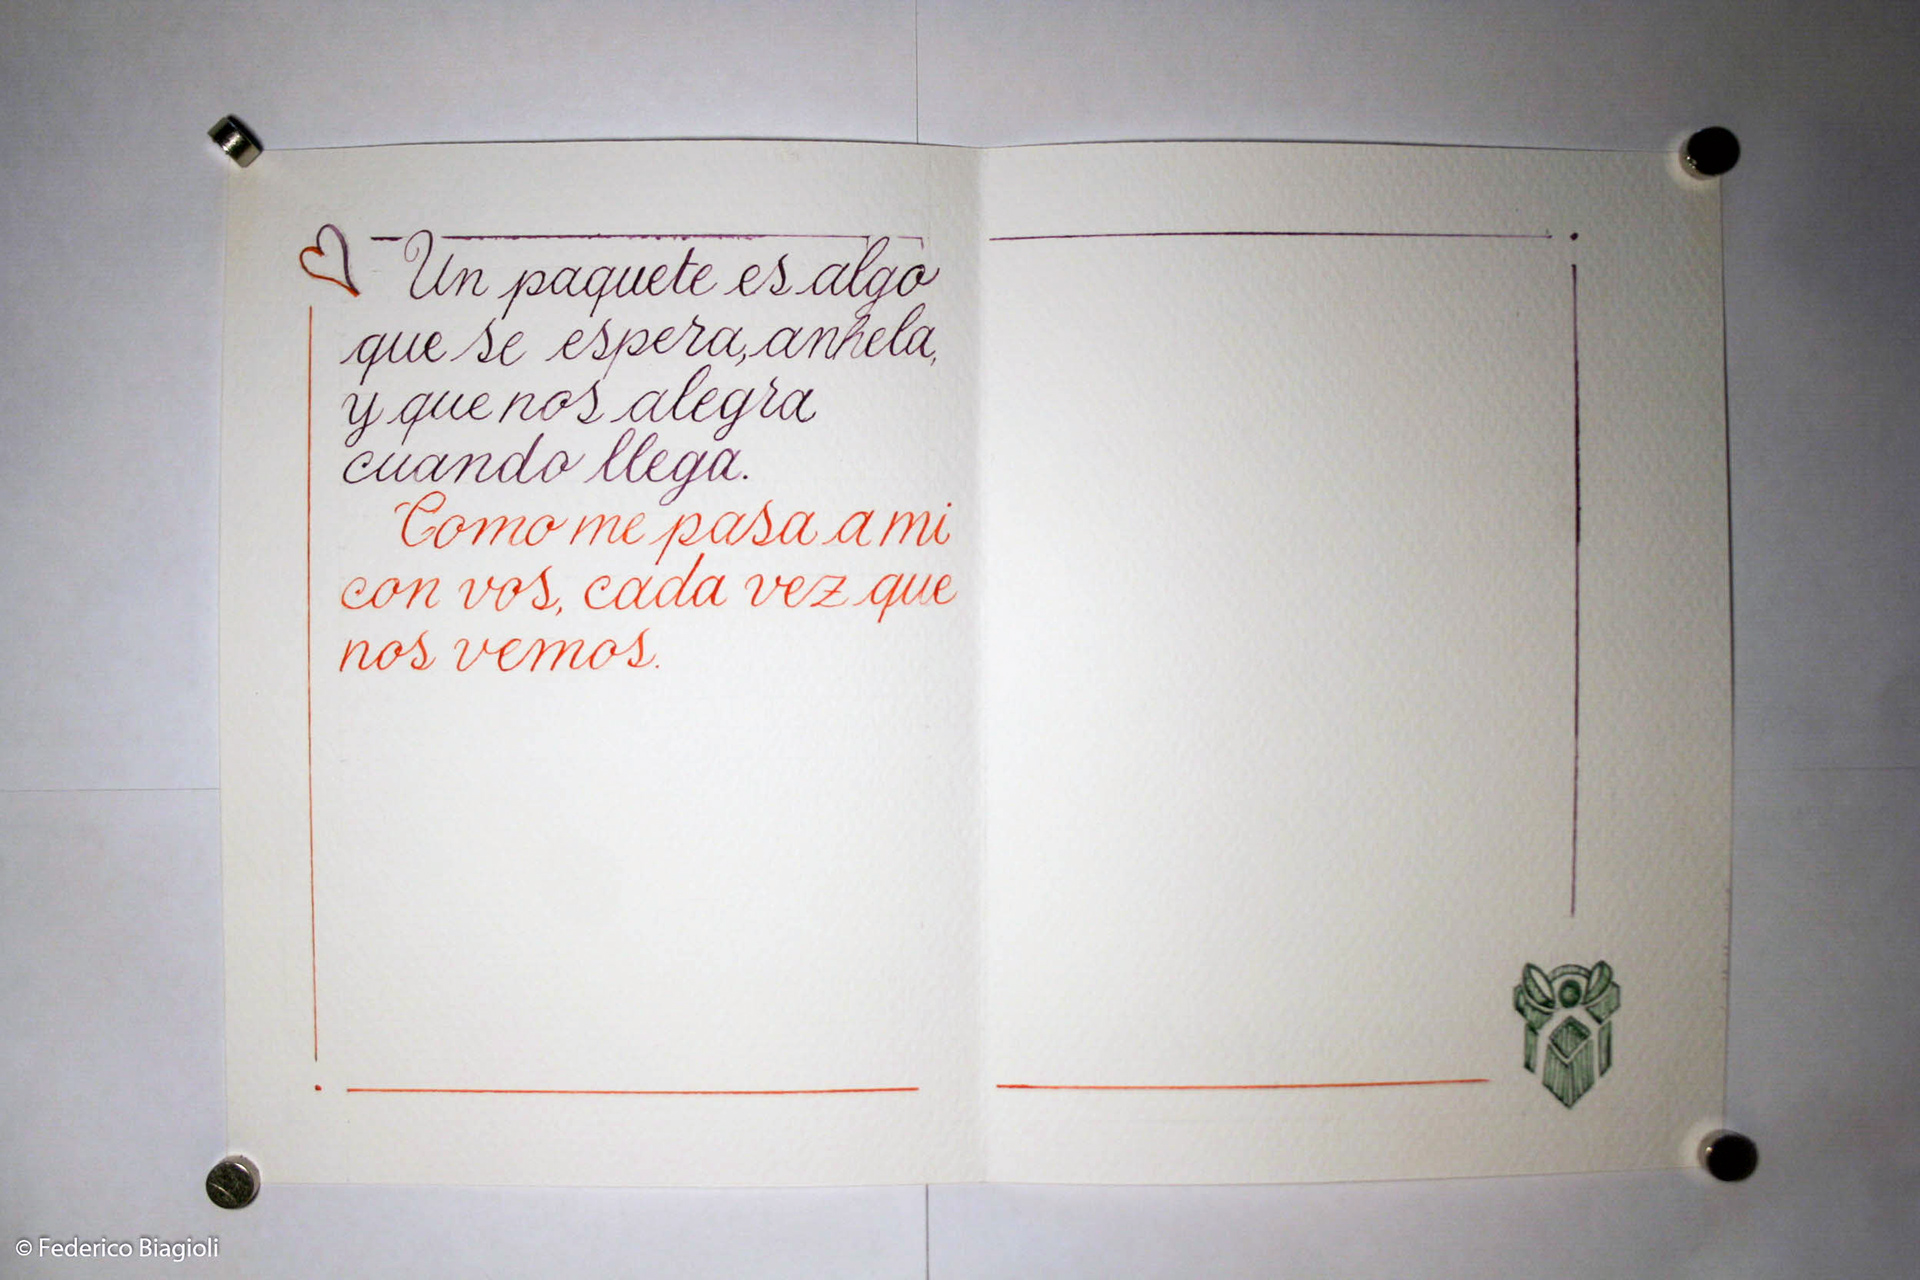 Un paquete es algo
que se espera, anhela,
y que nos alegra
cuando llega.
Como me pasa a mi
con vos, cada vez que
nos vemos.
© Federico Biagioli